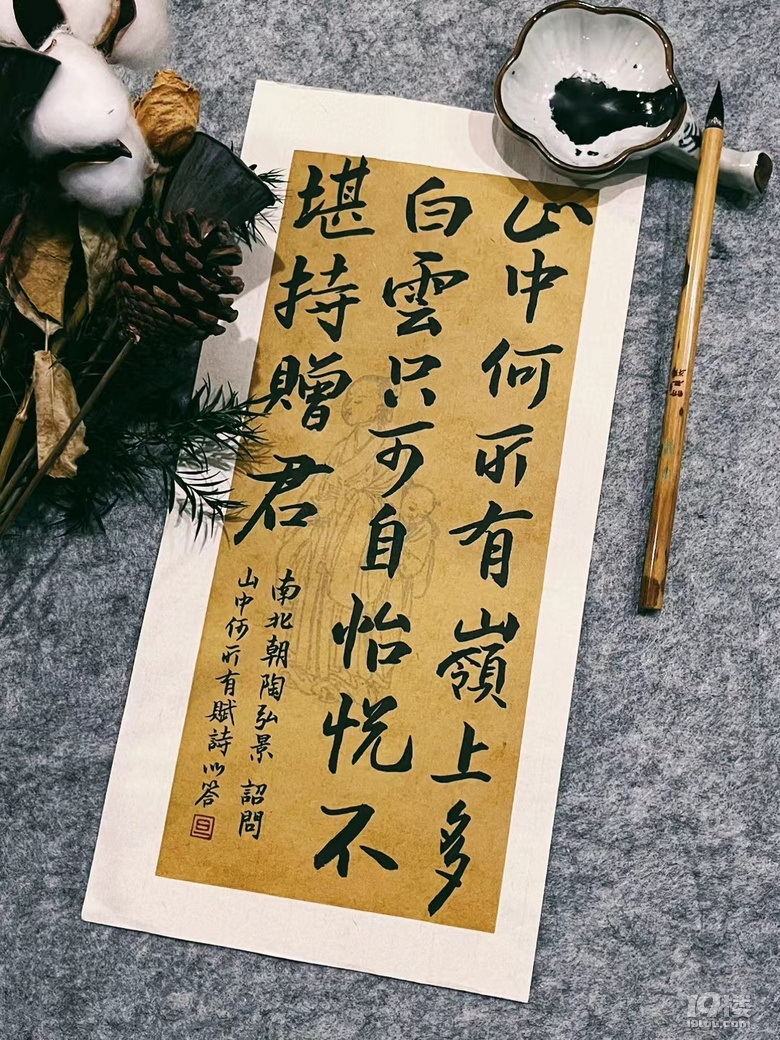 山中何所有嶺上多
白雲只可自怡悅不
堪持贈君
南北朝陶弘景 詔問
山中何所有賦詩以答
19楼
19lou.com